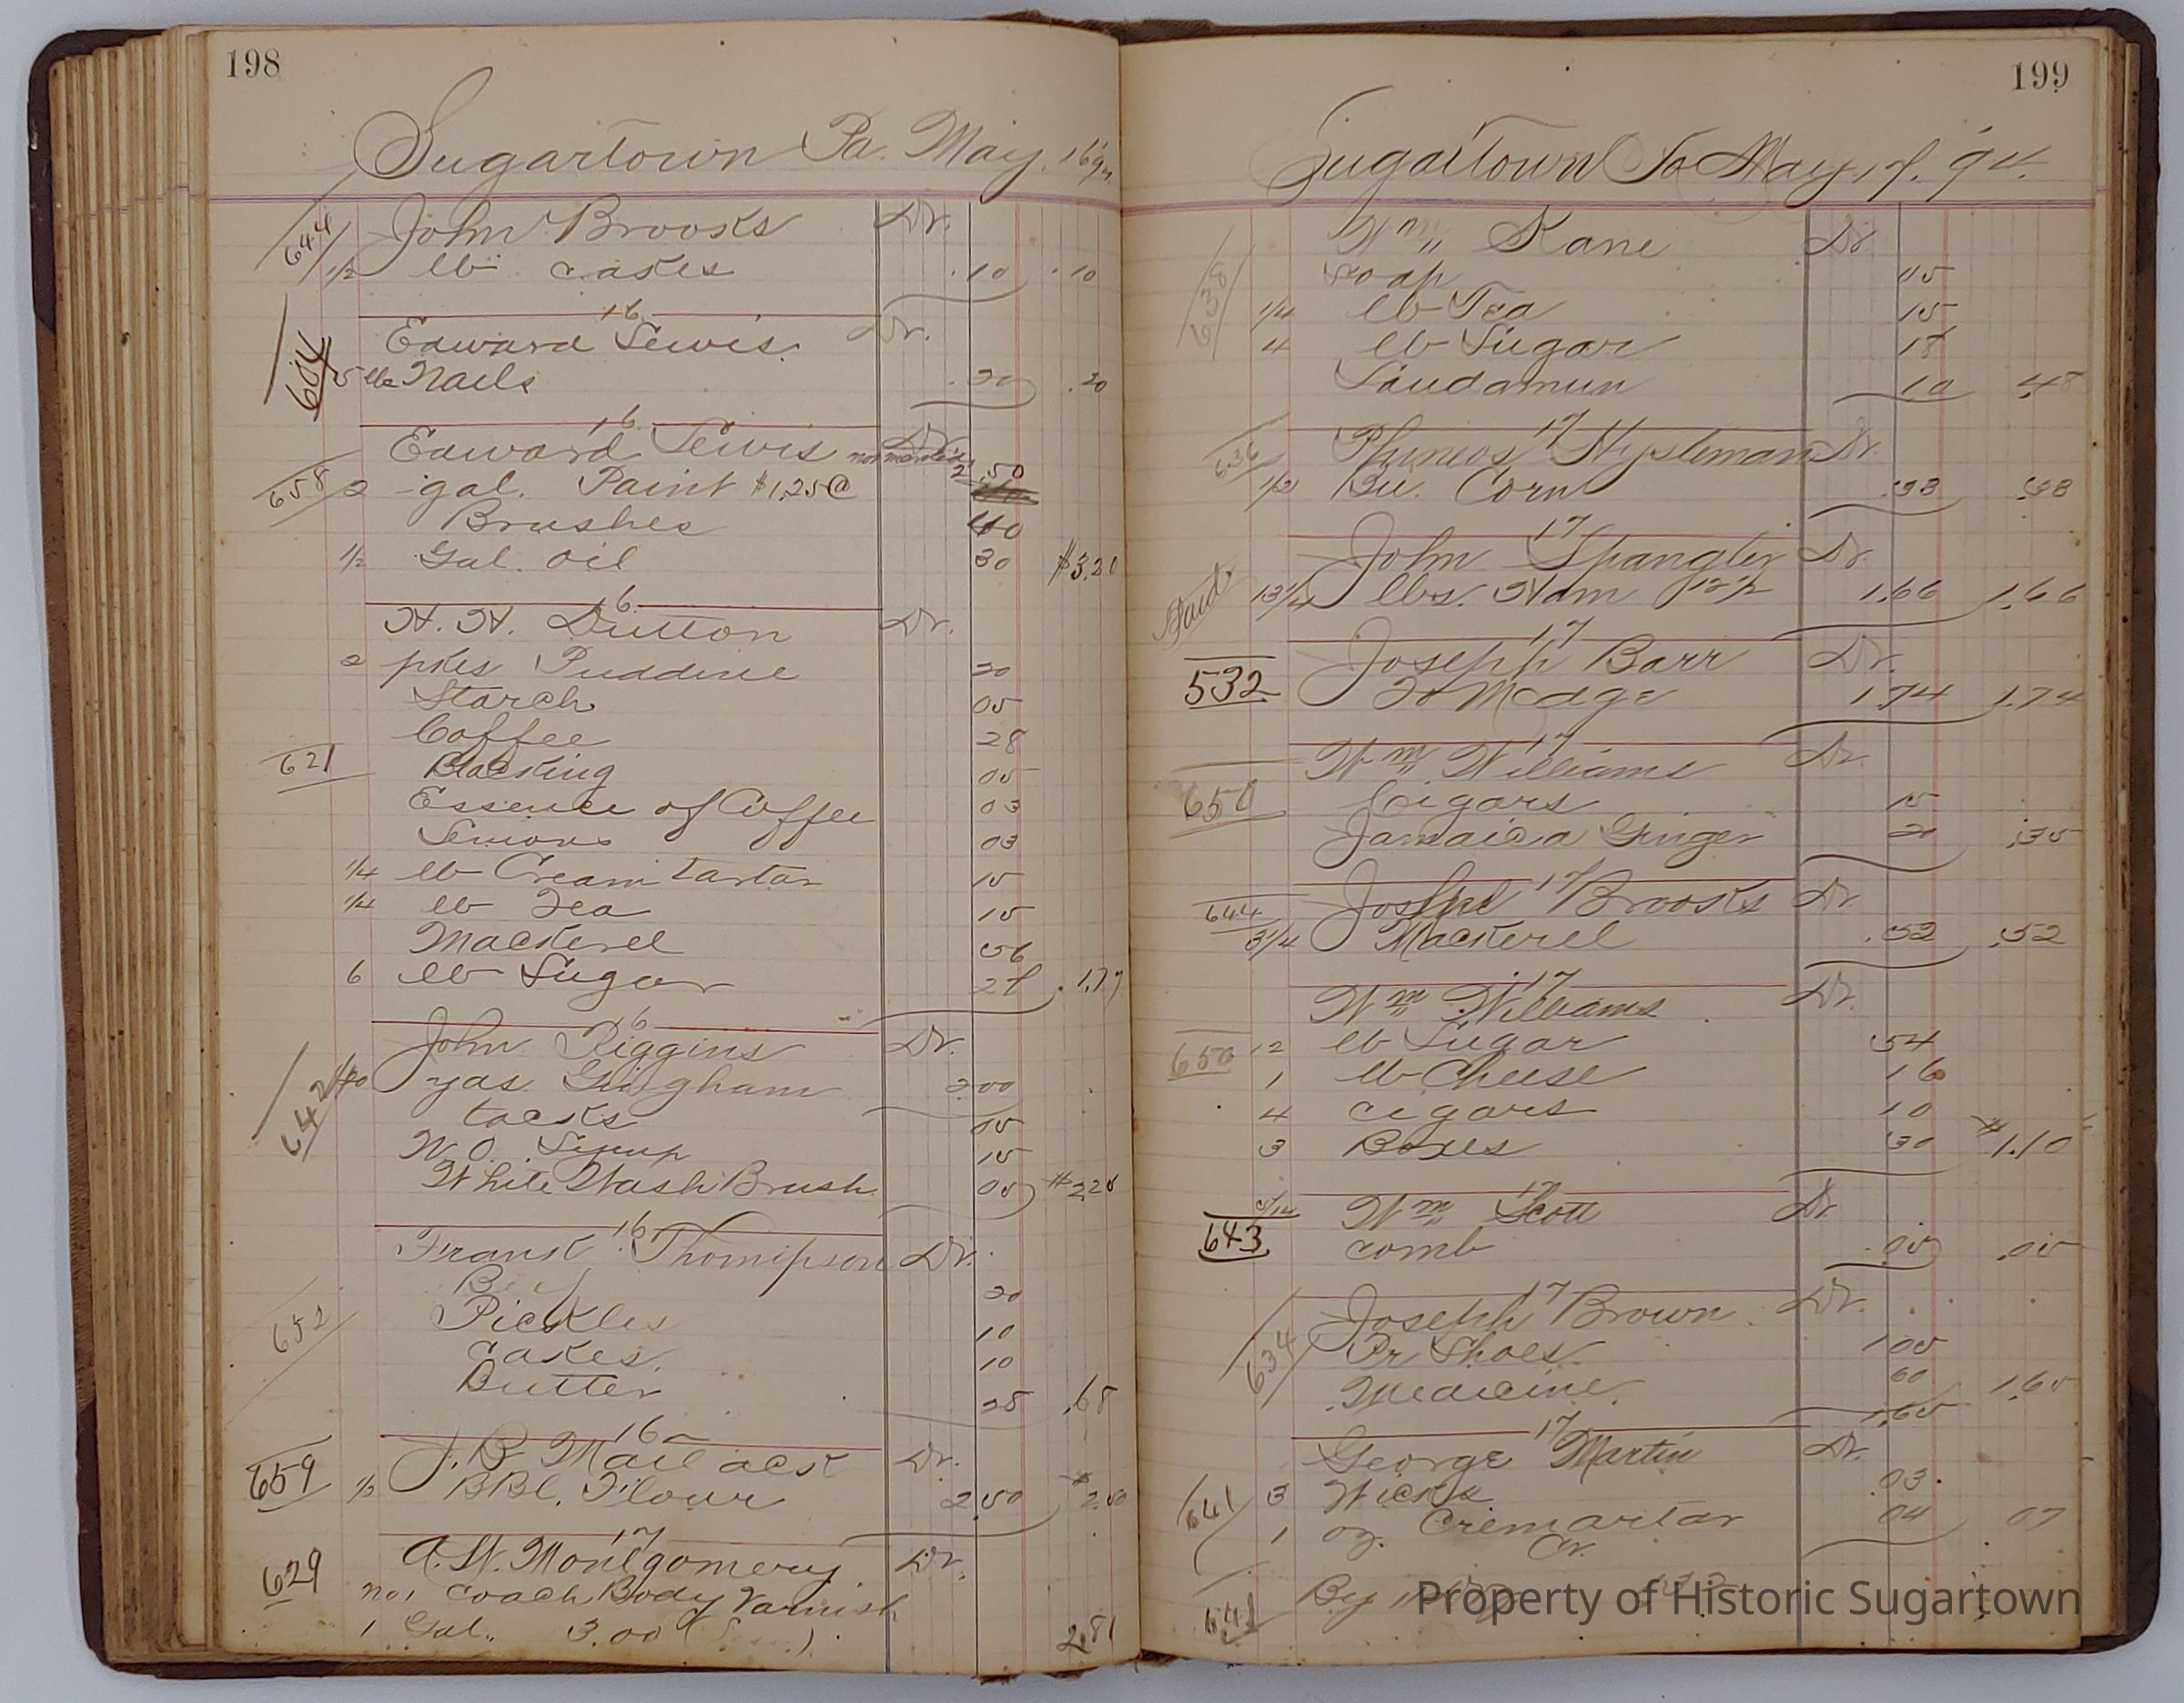 198
Sugartown Pa. May. 16
644 John Brooks Dr.
1/2 lb cakes .10 .10
16
Edward Lewis. Dr.
604 5 lbs Nails .20 .20
16
Edward Lewis Dr.
658 2 gal. Paint $1.25@ 2.50
Brushes 40
1/2 Gal. Oil 30 $3.20
16
H. H. Dutton Dr.
2 pkes Puddine 20
Starch 05
Coffee 28
621 Blacking 05
Essence of Coffee 03
Lemons 03
1/4 lb Cream tartar 15
1/4 lb Tea 15
Mackerel 56
6 lb Sugar 27 1.77
16
John Riggins Dr.
642 yds. Gingham 2 00
tacks 05
W. O. Syrup 15
White Wash Brush 05 $2.25
16
Frank Thompson Dr.
652 20
Pickles 10
Cakes. 10
Butter 28 .68
16
J. B. Dr.
659 1/2 BBl. Flour 2.50 $2.50
17
A. W. Montgomery Dr.
629 No 1 Coach Body Varnish
1 Gal. 3.00 2.81
199
Sugartown Pa May 17. 94.
Wm Kane Dr.
638 Soap 05
1/4 lb Tea 15
4 lb Sugar 18
Laudamun 10 .48
17
636 Dr.
1/2 Bu. Corn .38 .38
17
John Spangler Dr.
Paid 13 1/4 lbs. Ham 1.66 1.66
17
Joseph Barr Dr.
532 To Mdge 1.74 1.74
17
Wm Williams Dr.
650 Cigars 15
Jamaica Ginger 20 .35
17
644 Joseph Brooks Dr.
3 1/4 Mackerel .52 .52
17
Wm Williams Dr.
650 12 lb Sugar 54
1 lb Cheese 16
4 cigars 10
3 Boxes 30 $1.10
17
Wm Scott Dr.
643 comb .05 .05
17
Joseph Brown Dr.
634 Pr Shoes 1 05
Medicine. 60 1.65
1.65
17
George Martin Dr.
641 3 Wicks .03
1 oz. Cremartar 04 07
Cr.
641 By
Property of Historic Sugartown